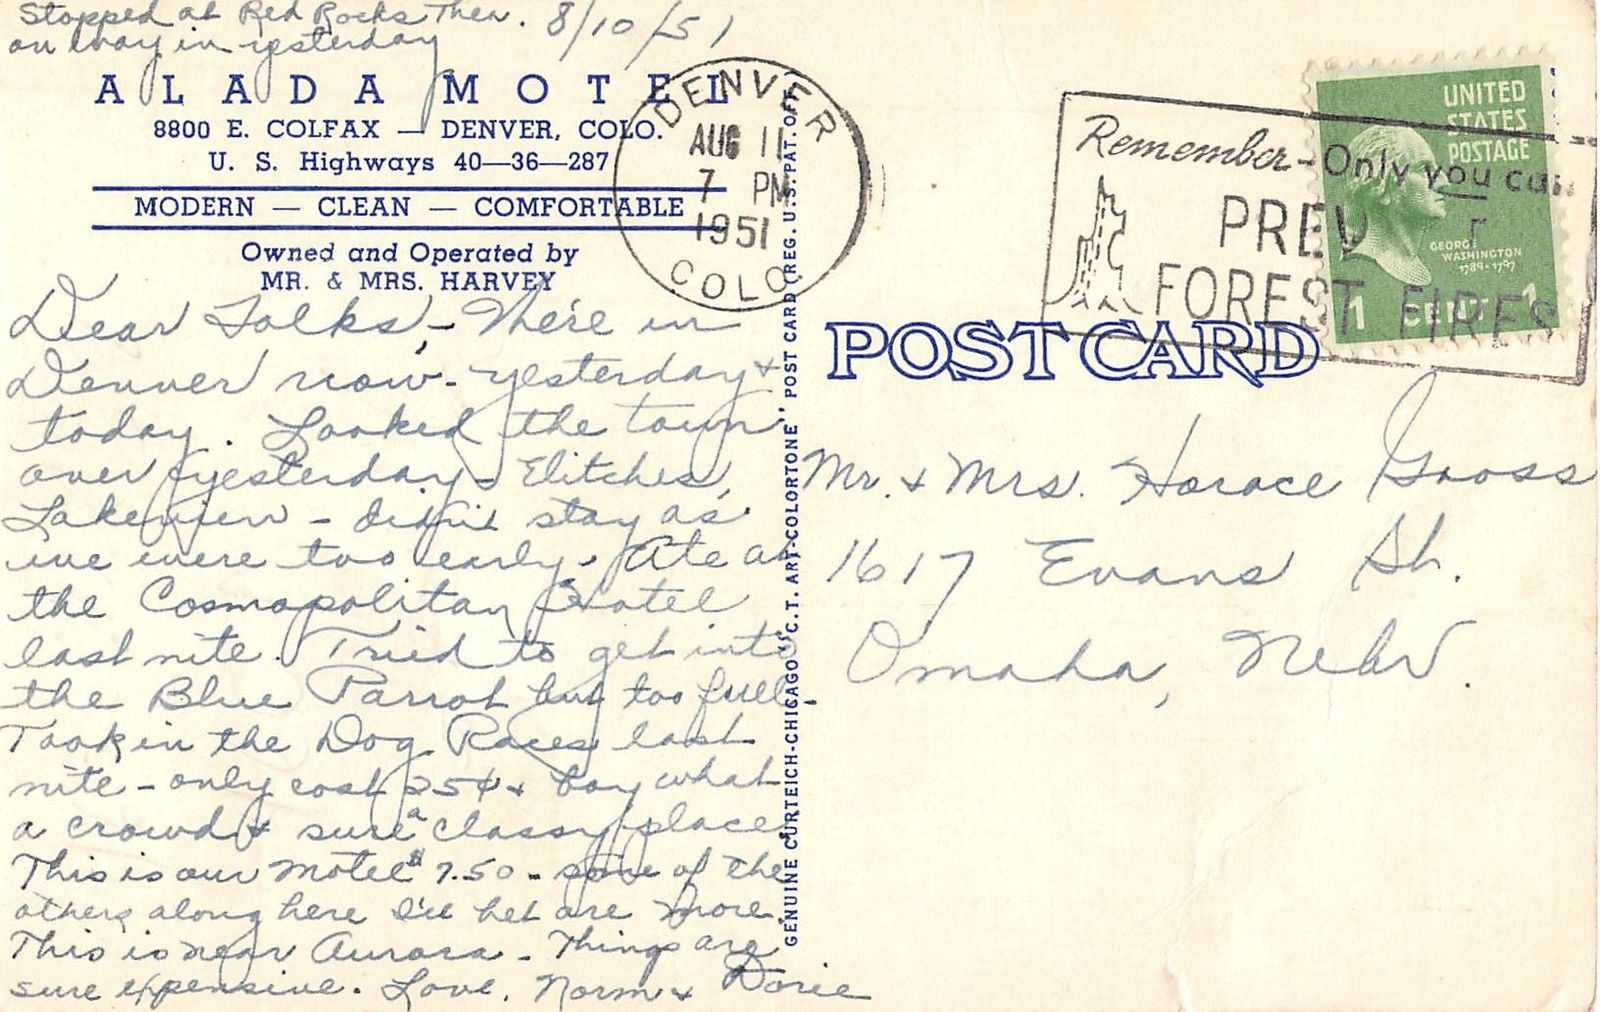 Stopped at Red Rocks Thea. 8/10/51
on way in yesterday
ALADA MOTEL
8800 E. COLFAX — DENVER, COLO.
U. S. Highways 40—36—287
MODERN — CLEAN — COMFORTABLE
Owned and Operated by
MR. & MRS. HARVEY
Dear Folks, - We're in
Denver now - yesterday &
today. Looked the town
over yesterday - Elitches,
Lakeview - didn't stay as
we were too early. Ate at
the Cosmopolitan Hotel
last nite. Tried to get into
the Blue Parrot but too full -
Took in the Dog Races last
nite - only cost 25¢ & boy what
a crowd & sure a classy place.
This is our motel $7.50 - some of the
others along here I'll bet are more.
This is near Aurora - Things are
sure expensive. Love, Norm & Dorie
DENVER
AUG 11
7 PM
1951
COLO.
GENUINE CURTEICH-CHICAGO "C.T. ART-COLORTONE" POST CARD (REG. U.S. PAT. OFF.)
Remember - Only you can
PREV T
FOREST FIRES
UNITED
STATES
POSTAGE
GEORGE
WASHINGTON
1789-1797
1 CENT 1
POST CARD
Mr. & Mrs. Horace Gross
1617 Evans St.
Omaha, Nebr.